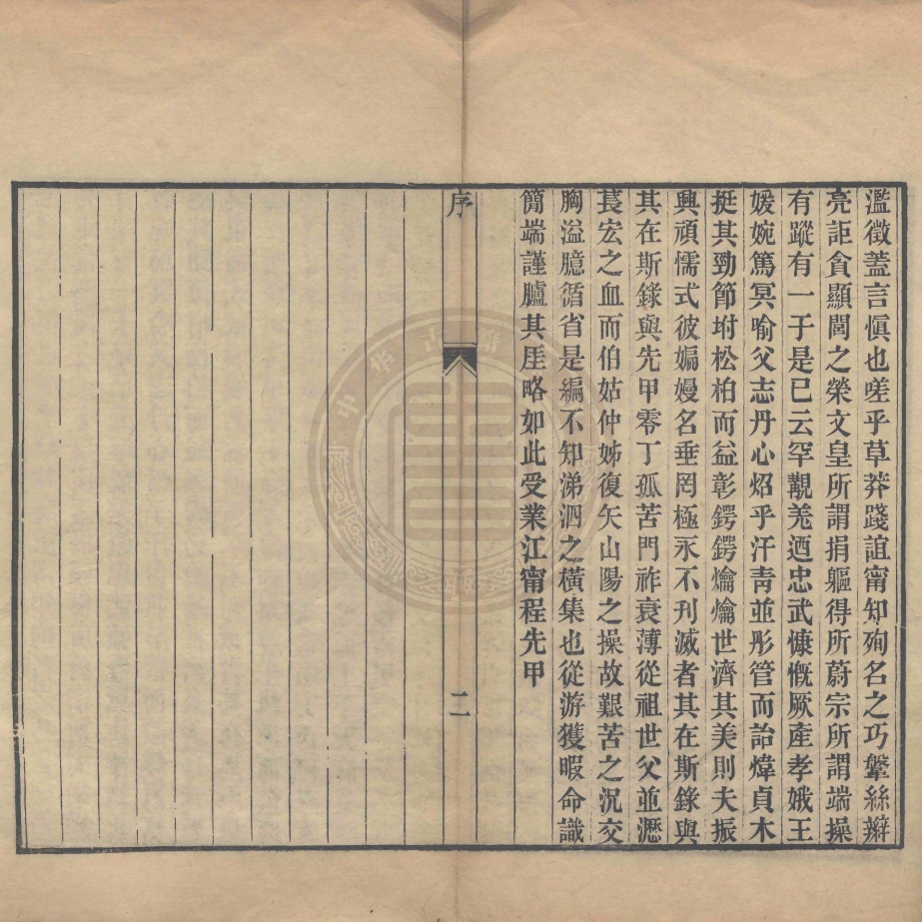 濫徵蓋言愼也嗟乎草莽踐誼甯知殉名之巧鞶絲辮
亮詎貪顯閭之榮文皇所謂捐軀得所蔚宗所謂端操
有蹤有一于是已云罕覯羗迺忠武慷慨厥產孝娥王
媛婉篤冥喻父志丹心炤乎汗靑並彤管而詒煒貞木
挺其勁節坿松柏而益彰鍔鍔爚爚世濟其美則夫振
興頑懦式彼媥嫚名垂罔極永不刋滅者其在斯錄與
其在斯錄與先甲零丁孤苦門祚衰薄從祖世父並瀝
萇宏之血而伯姑仲姊復矢山陽之操故艱苦之況交
胸溢臆循省是編不知涕泗之橫集也從游獲暇命識
簡端謹臚其厓略如此受業江甯程先甲
序
二